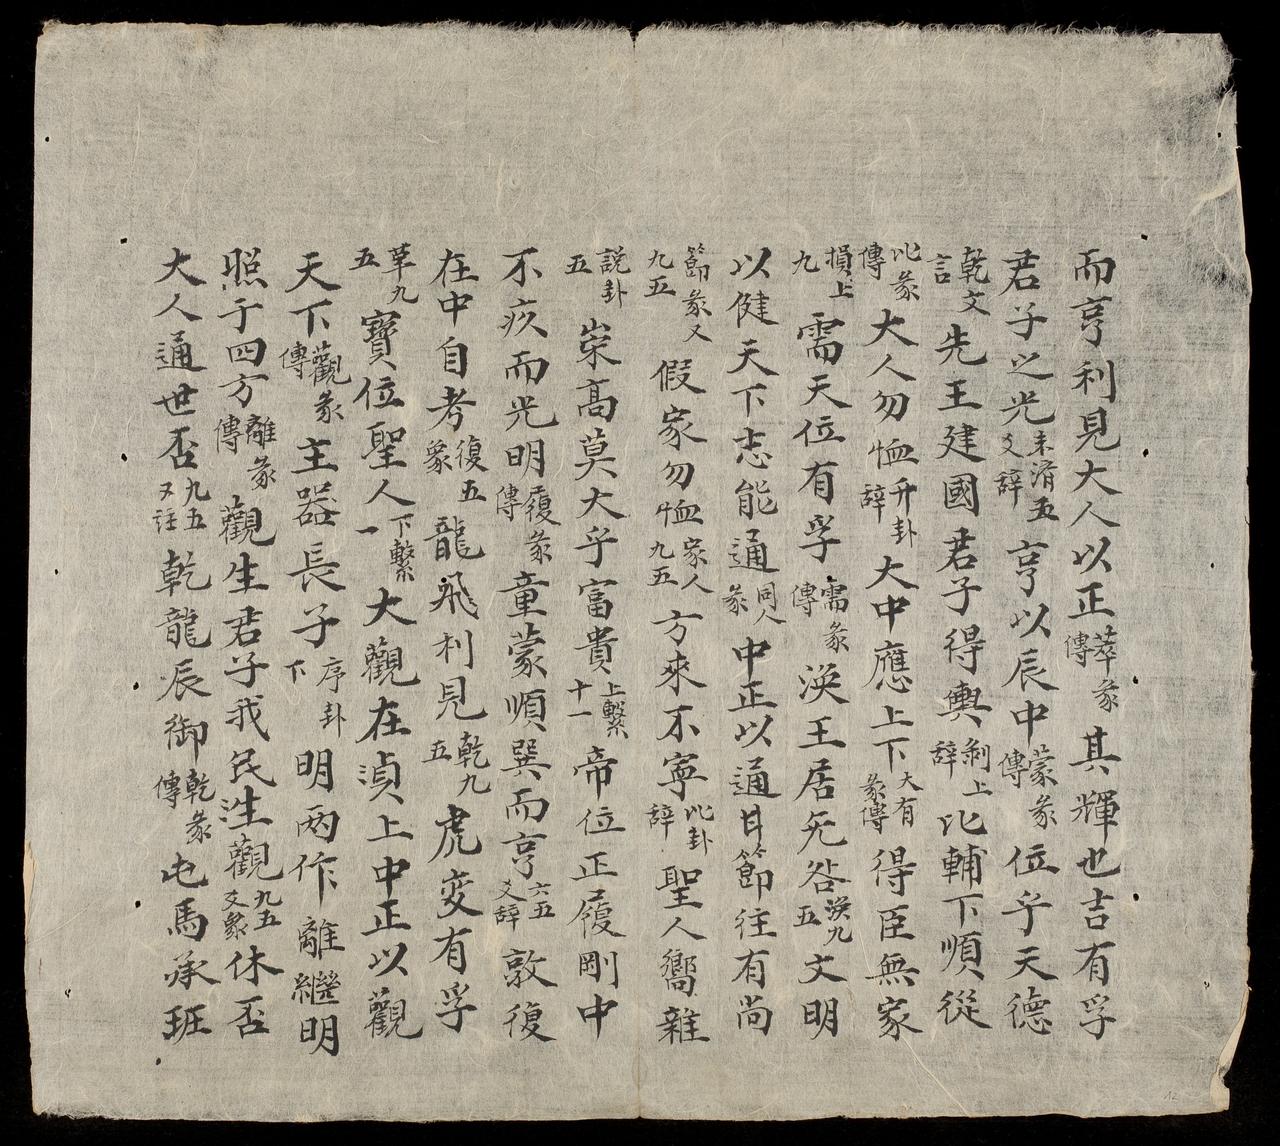 而亨利見大人以正萃彖傳其輝也吉有孚
君子之光未濟五爻辞亨以辰中蒙彖傳位乎天德
乾文言先王建國君子得輿剝上辞比輔下順從
比彖傳大人勿恤升卦辞大中應上下大有彖傳得臣無家
損上九需天位有孚需彖傳渙王居无咎渙九五文明
以健天下志能通同人彖中正以通甘節往有尚
節彖又九五假家勿恤家人九五方來不寧比卦辞聖人嚮離
説卦五崇高莫大乎富貴上繫十一帝位正履剛中
不疚而光明履彖傳童蒙順巽而亨六五爻辞敦復
在中自考復五象龍飛利見乾九五虎变有孚
革九五寶位聖人下繫一大觀在浈上中正以觀
天下觀彖傳主器長子序卦下明两作離繼明
照于四方離彖傳觀生君子我民泩觀九五爻象休否
大人通世否九五又註乾龍辰御乾彖傳屯馬承班